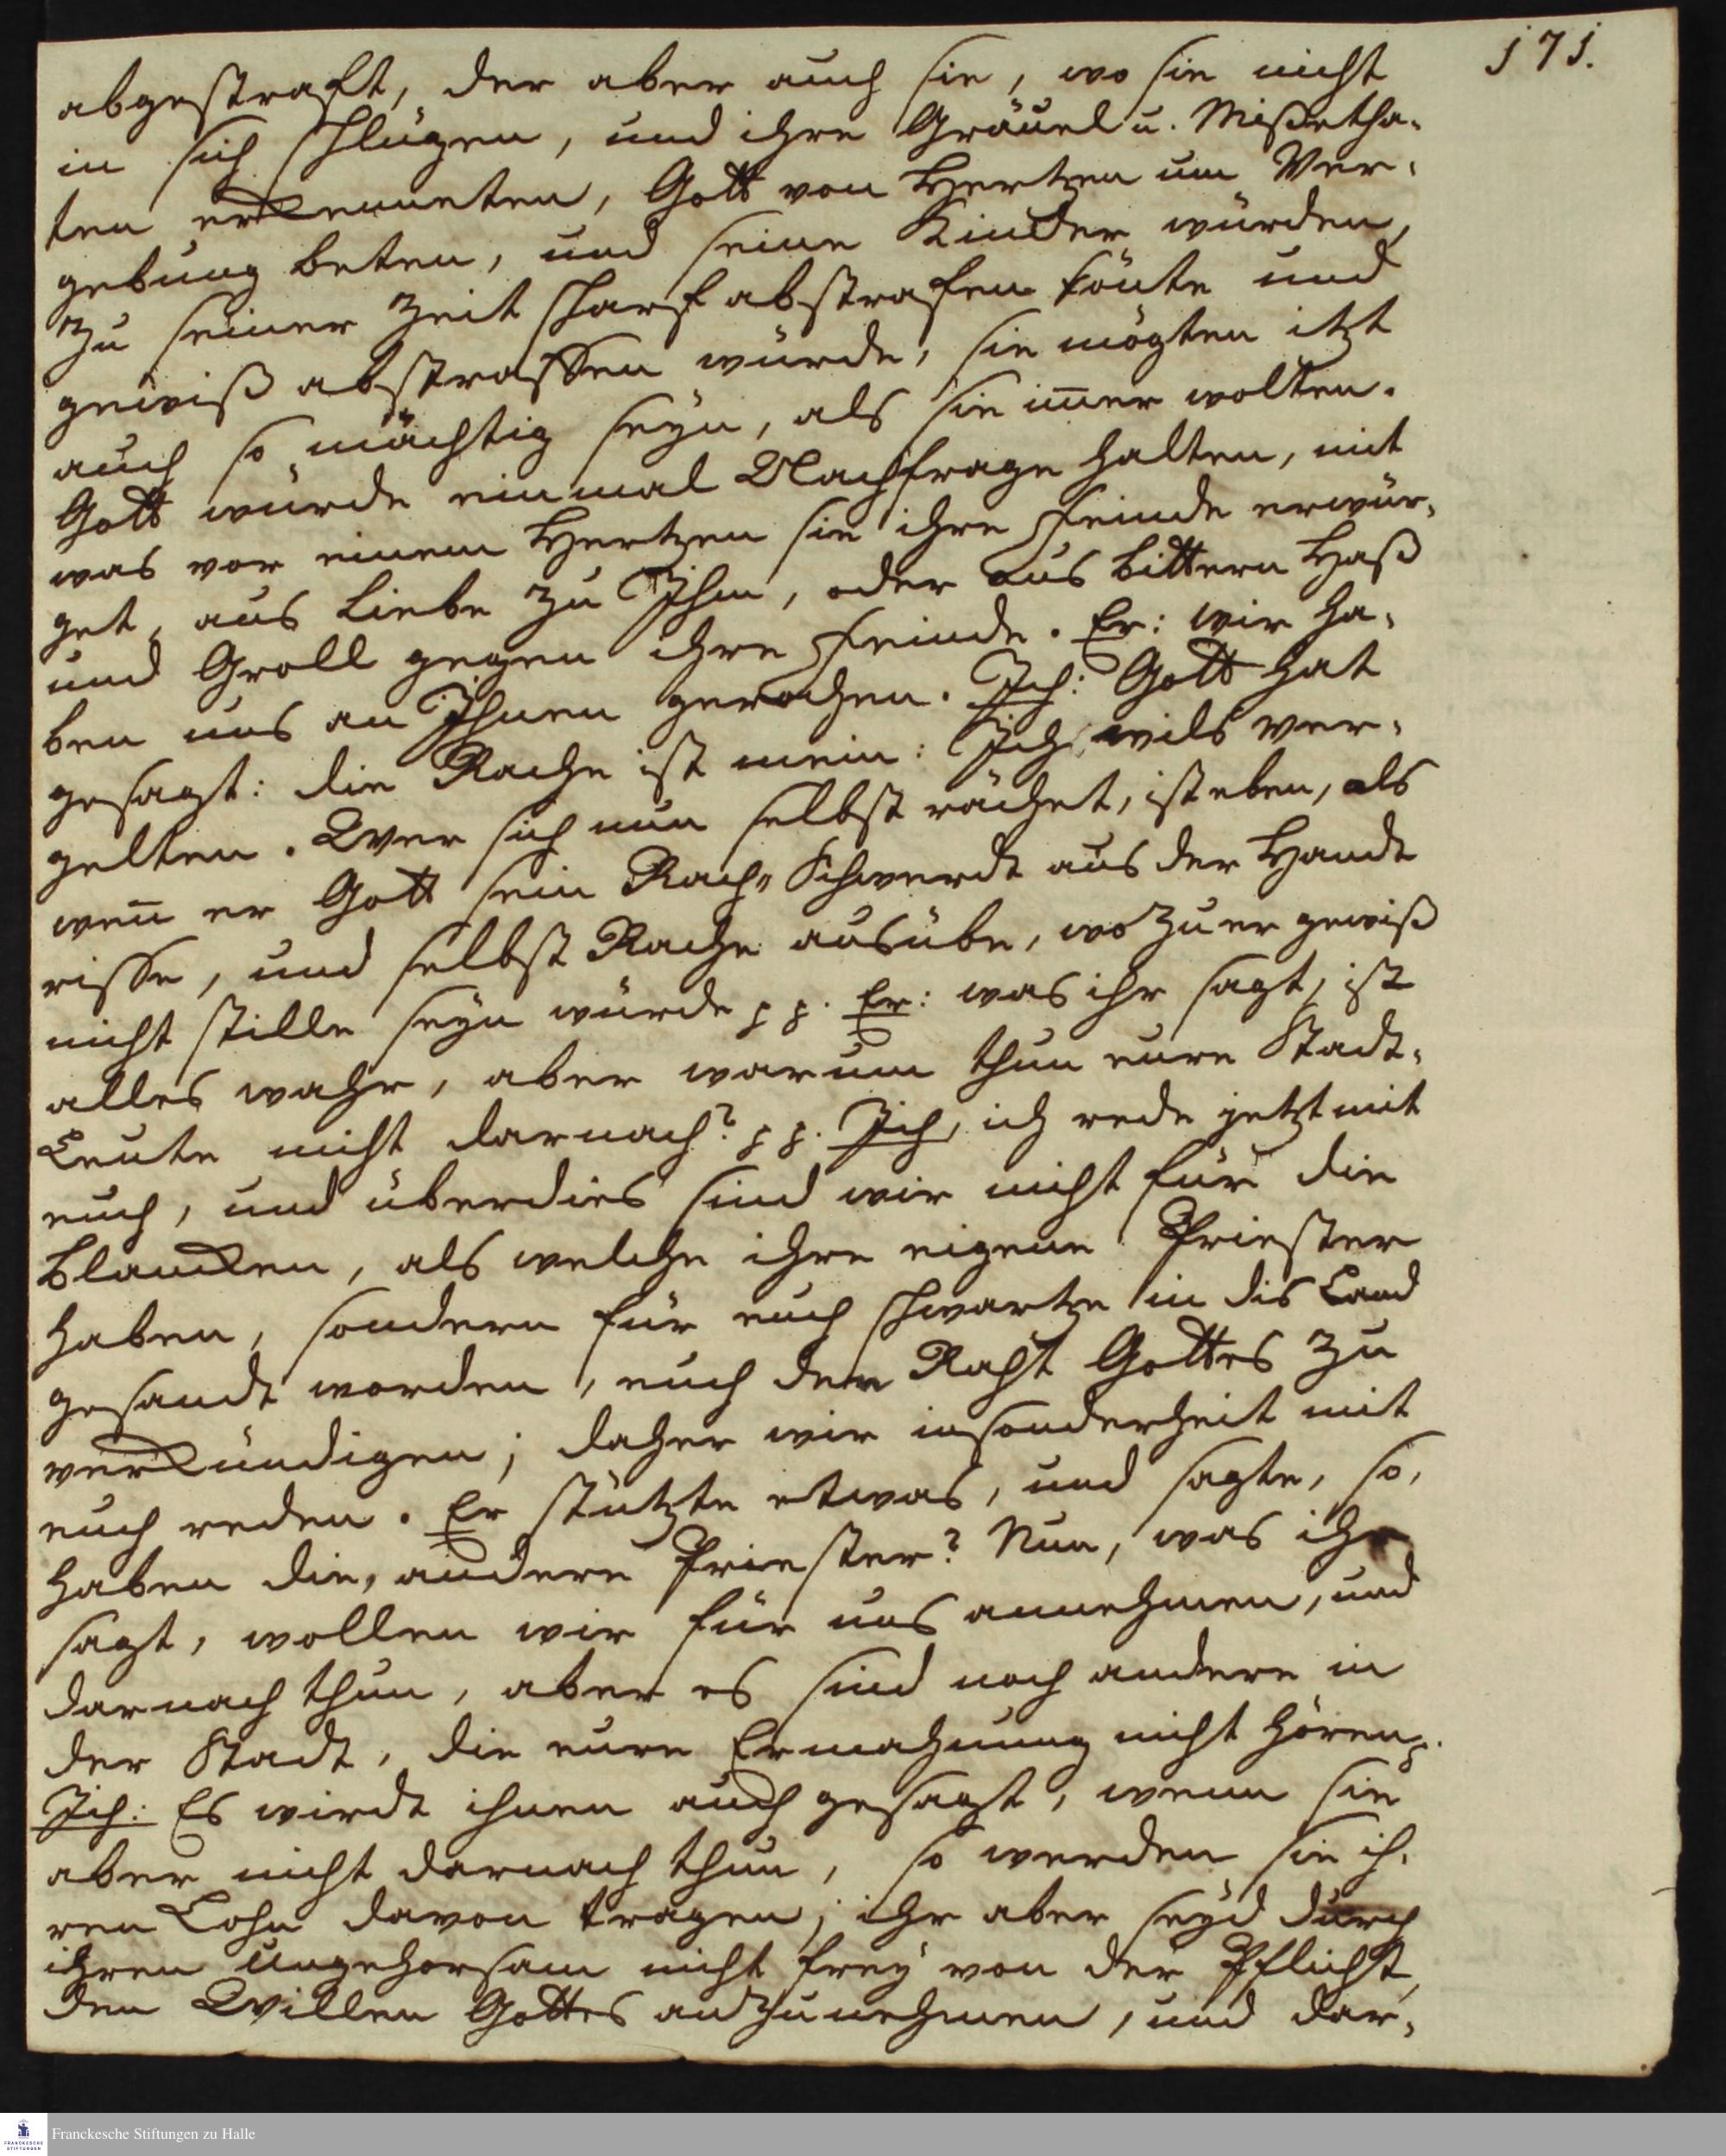 171.
abgestraft, der aber auch sie, wo sie nicht
in sich schlügen, und ihre Gräuel u. Mißetha-
ten erkenneten, Gott von Hertzen um Ver-
gebung beten, und seine Kinder würden,
zu seiner Zeit scharf abstrafen könte und
gewiß abstraffen würde, sie mögten itzt
auch so mächtig seyn, als sie im̄er wolten.
Gott würde einmal Nachfrage halten, mit
was vor einem Hertzen sie ihre Feinde erwür-
get, aus Liebe zu Ihm, oder aus bittern Haß
und Groll gegen ihre Feinde. Er: wir ha-
ben uns an Ihnen gerochen. Ich: Gott hat
gesagt: die Rache ist mein: Ich wils ver-
gelten. Wer sich nun selbst rächet, ist eben, als
wen̄ er Gott sein Rach-Schwerdt aus der Handt
risse, und selbst Rache ausübe, wo zu er gewiß
nicht stille seyn würde pp. Er: was ihr sagt, ist
alles wahr, aber warum thun eure Stadt-
Leute nicht darnach? pp. Ich, ich rede jetzt mit
euch, und überdies sind wir nicht für die
Blancken, als welche ihre eigene Priester
haben, sondern für euch schwartze in dis Land
gesandt worden, euch den Raht Gottes zu
verkündigen; daher wir insonderheit mit
euch reden. Er stützte etwas, und sagte, so,
haben die, andere Priester? Nun, was ihr
sagt, wollen wir für uns annehmen, und
darnach thun, aber es sind noch andere in
der Stadt, die eure Ermahnung nicht hören p.
Ich: Es wirdt ihnen auch gesagt, wenn sie
aber nicht darnach thun, so werden sie ih-
ren Lohn davon tragen; ihr aber seyd durch
ihren Ungehorsam nicht frey von der Pflicht,
den Willen Gottes anzunehmen, und dar-
Franckesche Stiftungen zu Halle
FRANCKESCHE
STIFTUNGEN